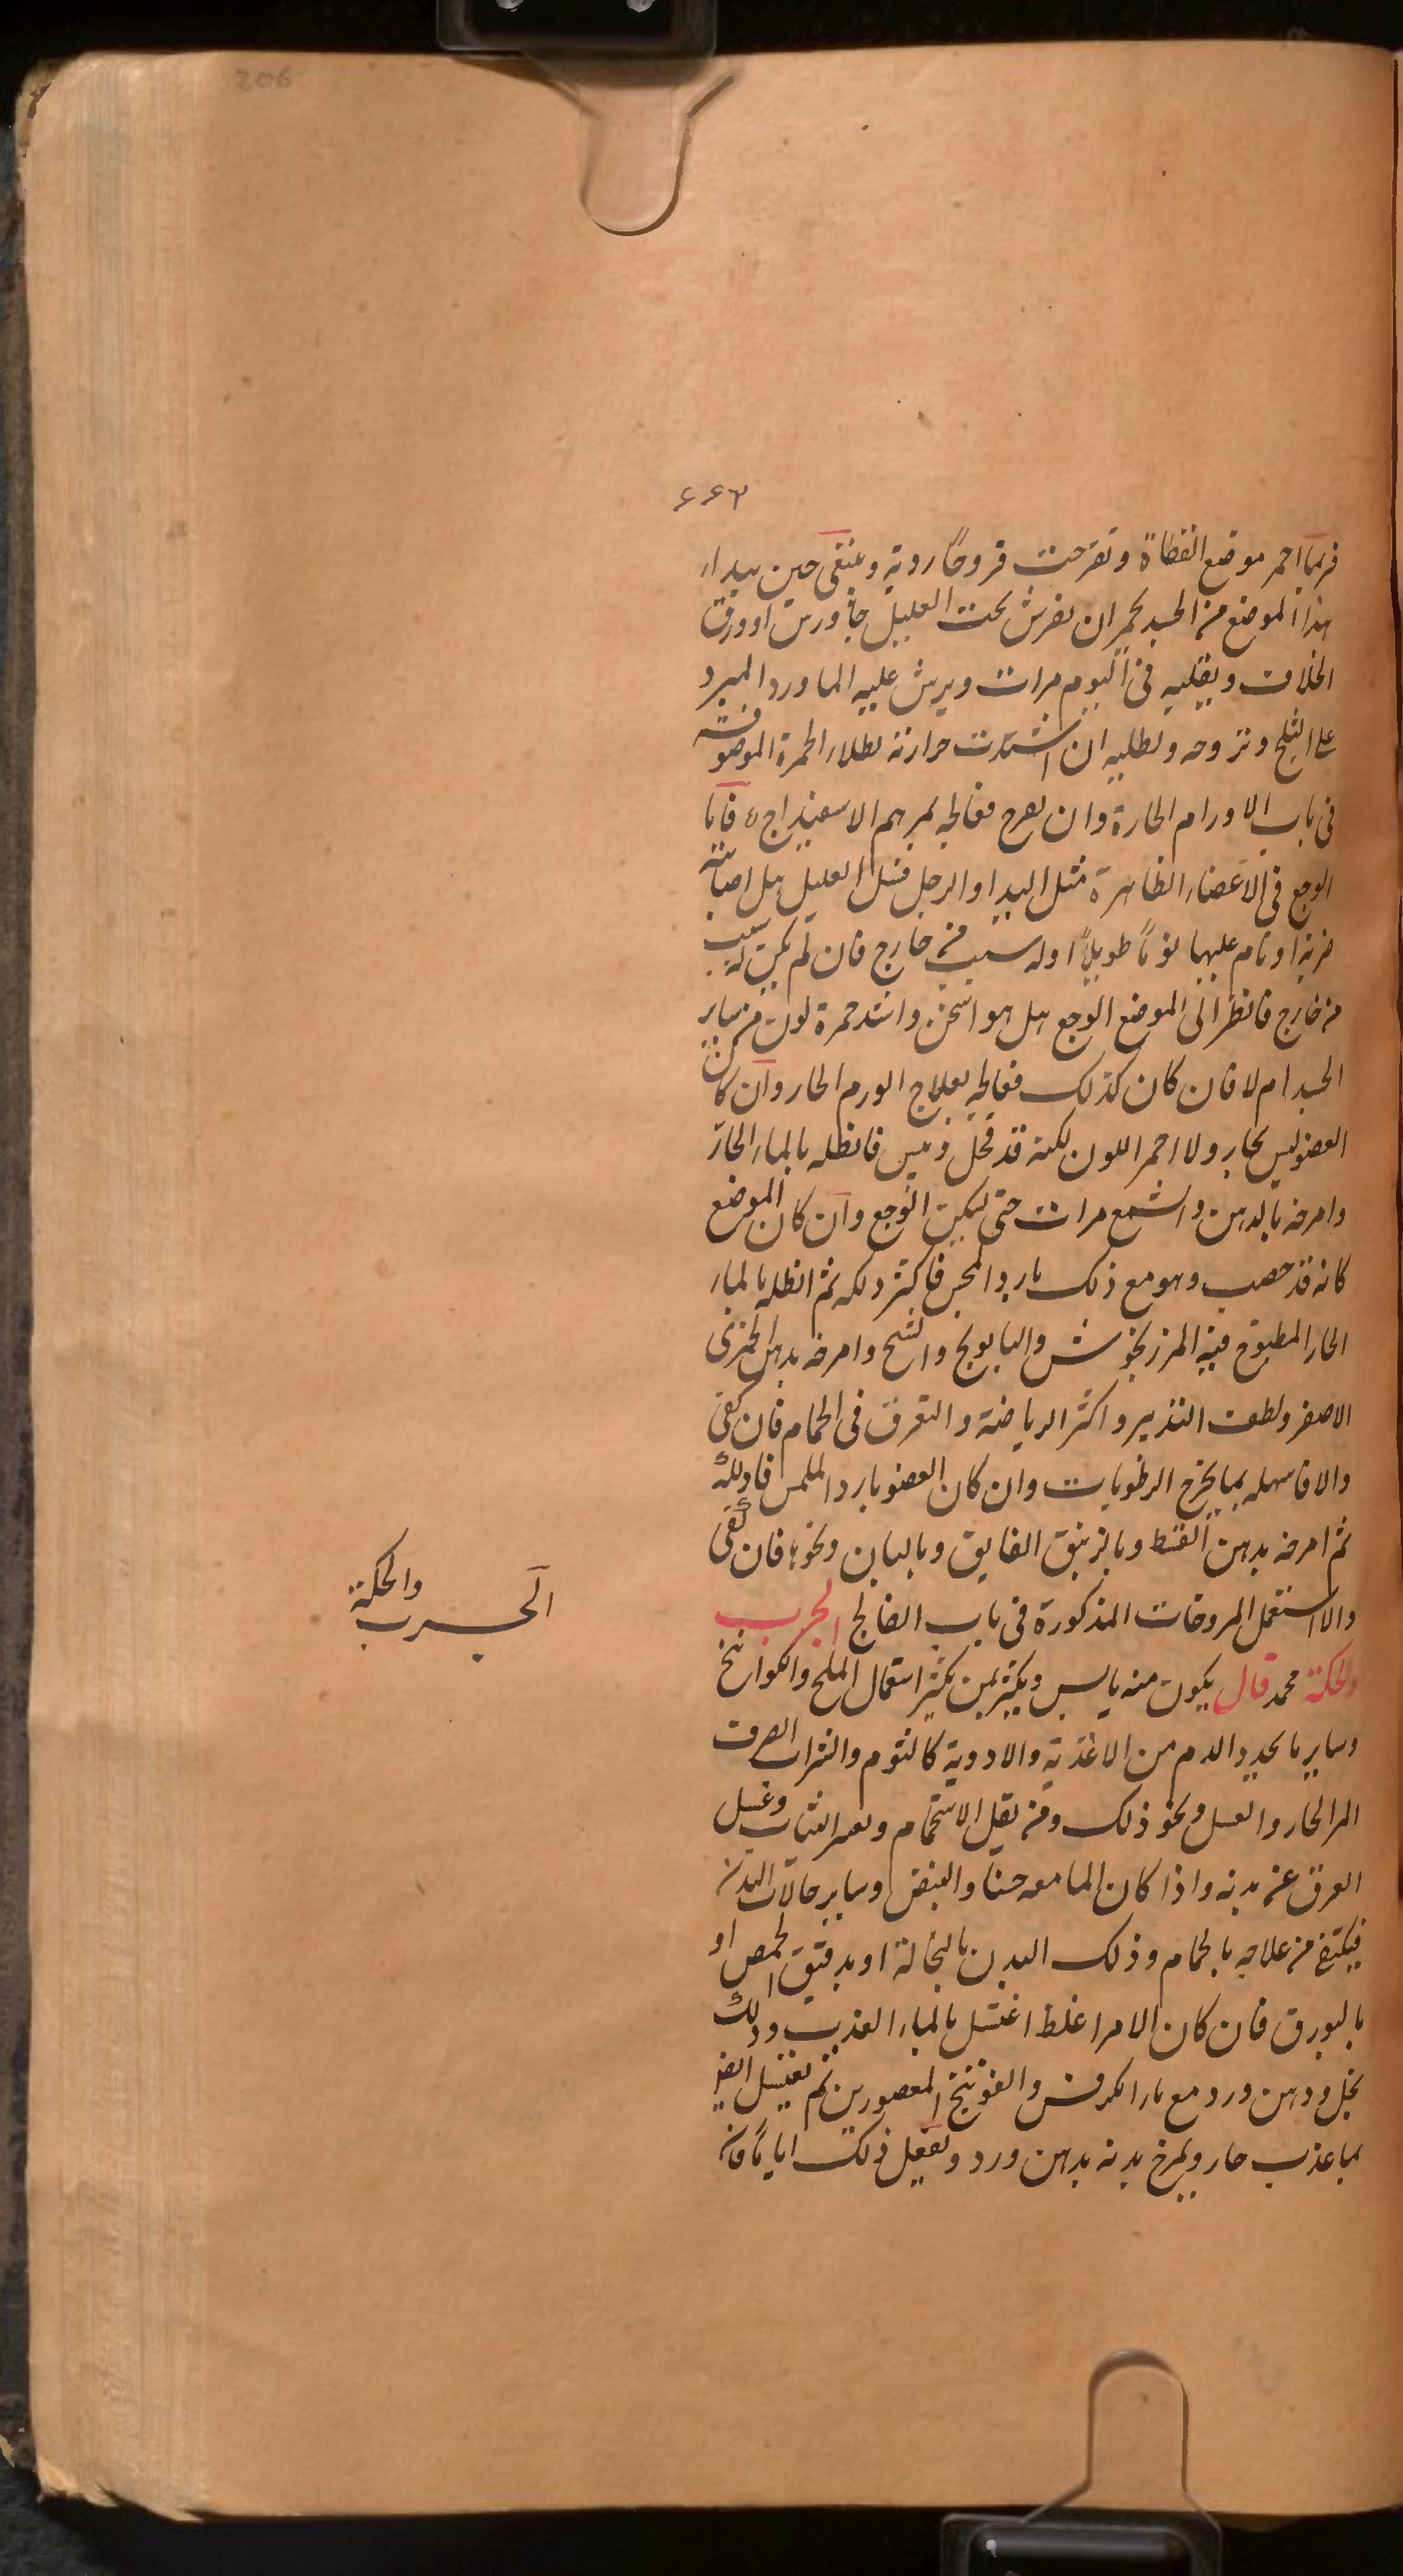 206
۶۶۳
فربما احمر موضع القطاة وتقرحت قروحًا ردية وينبغى حين يبدأ
هذا الموضع من الجسد يحمر ان يفرش تحت العليل جاورس او ورق
الخلاف ويقلبه فى اليوم مرات ويرش عليه الماورد المبرد
على الثلج وتروحه وتطليه ان اشتدت حرارته بطلاء الحمرة الموصوفة
فى باب الاورام الحارة وان تقرح فعالجه بمرهم الاسفيداج فاما
الوجع فى الاعضاء الظاهرة مثل اليد او الرجل فسل العليل هل اصابته
ضربة او نام عليها نومًا طويلًا او له سبب من خارج فان لم يكن له سبب
من خارج فانظر الى الموضع الوجع هل هو اسخن واشد حمرة لون من ساير
الجسد ام لا فان كان كذلك فعالجه بعلاج الورم الحار وان كان
العضو ليس بحار ولا احمر اللون لكنه قد قحل ويبس فانطله بالماء الحارّ
وامرخه بالدهن والشمع مرات حتى يسكن الوجع وان كان الموضع
كانه قد خصب وهو مع ذلك بارد المجس فاكثر دلكه ثم انطله بالماء
الحار المطبوخ فيه المرزنجوش والبابونج والشيح وامرخه بدهن الخيرى
الاصفر ولطف التدبير واكثر الرياضة والتعرق فى الحمام فان كفى
والا فاسهله بما يخرج الرطوبات وان كان العضو بارد الملمس فادلكه
ثم امرخه بدهن القسط وبالزنبق الفايق وبالبان ونحوها فان كفى
والا استعمل المروخات المذكورة فى باب الفالج الجرب
والحكة محمد قال يكون منه يابس ويكثر بمن يكثر استعمال الملح والكوامخ
وساير ما يحدد الدم من الاغذية والادوية كالثوم والشراب الصرف
المر الحار والعسل ونحو ذلك ومن يقل الاستحمام وتغيير الثياب وغسل
العرق عن بدنه واذا كان الما معه حسنا والنبض وساير حالات البدن
فيكتفى من علاجه بالحمام وذلك البدن بالنخالة او بدقيق الحمص او
بالبورق فان كان الامر اغلظ اغتسل بالماء العذب ودلك
بخل ودهن ورد مع ماء الكرفس والفوتنج المعصورين ثم يغتسل ايضا
بما عذب حار ويمرخ بدنه بدهن ورد ويفعل ذلك اياما فان
الجرب والحكة